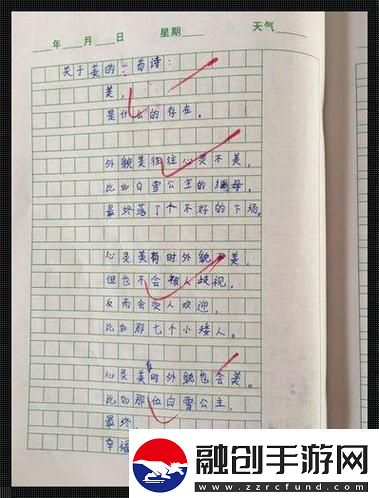 年 月 日 星期 天气
关于美的一首诗：
美，
是什么的存在。
外貌美往往心灵不美，
比如白雪公主的继母，
最终落了个不好的下场。
心灵美有时外貌不美，
但也不会被人歧视，
反而会受人欢迎，
比如那七个小矮人。
心灵美有时外貌也会美。
比如那位白雪公主，
最终
幸福
融创手游网
www.zzrcfund.com